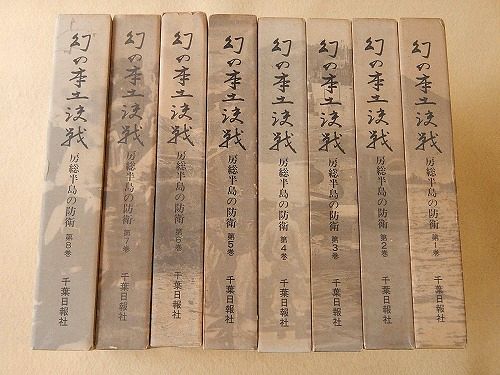 幻の本土決戦 房総半島の防衛 第8巻 千葉日報社
幻の本土決戦 房総半島の防衛 第7巻 千葉日報社
幻の本土決戦 房総半島の防衛 第6巻 千葉日報社
幻の本土決戦 房総半島の防衛 第5巻 千葉日報社
幻の本土決戦 房総半島の防衛 第4巻 千葉日報社
幻の本土決戦 房総半島の防衛 第3巻 千葉日報社
幻の本土決戦 房総半島の防衛 第2巻 千葉日報社
幻の本土決戦 房総半島の防衛 第1巻 千葉日報社